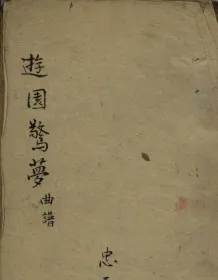 遊園驚夢曲譜
忠